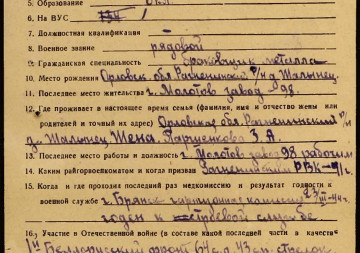 5. Образование
6. На ВУС 134
7. Должностная квалификация —
8. Военное звание рядовой
9. Гражданская специальность браковщик металла
10. Место рождения Орловск. обл
11. Последнее место жительства г. Молотов завод 98.
12. Где проживает в настоящее время семья (фамилия, имя и отчество жены или
родителей и точный их адрес) Орловская обл
Жена. З. А.
13. Последнее место работы и должность г. Молотов завод 98 рабочим
14. Каким райгорвоенкоматом и когда призван РВК
15. Когда и где проходил последний раз медкомиссию и результат годности к
военной службе г. Брянск гарнизонная комиссия 23/III-44г.
годен к строевой службе
Участие в Отечественной войне (в составе какой последней части и в качестве
1й Белорусский фронт 64 с.д. 43 сп. стрелок